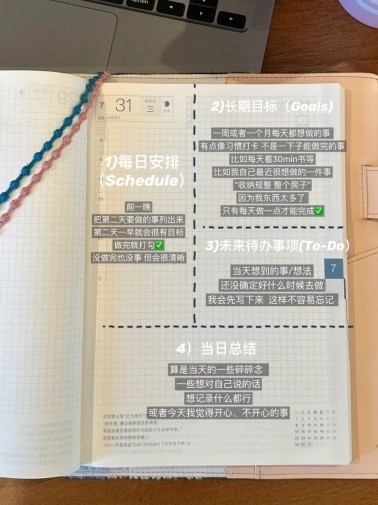 7
31
三
1)每日安排
(Schedule)
前一晚
把第二天要做的事列出来
第二天一早就会很有目标
做完就打勾✅
没做完也没事 但会很清晰
2)长期目标（Goals)
一周或者一个月每天都想做的事
有点像习惯打卡 不是一下子能做完的事
比如每天看30min书等
比如我自己最近很想做的一件事
“收纳规整 整个房子”
因为我东西太多了
只有每天做一点才能完成✅
3)未来待办事项(To-Do)
7
当天想到的事/想法
还没确定好什么时候去做
我会先写下来 这样不容易忘记
4）当日总结
算是当天的一些碎碎念
一些想对自己说的话
想记录什么都行
或者今天我觉得开心、不开心的事